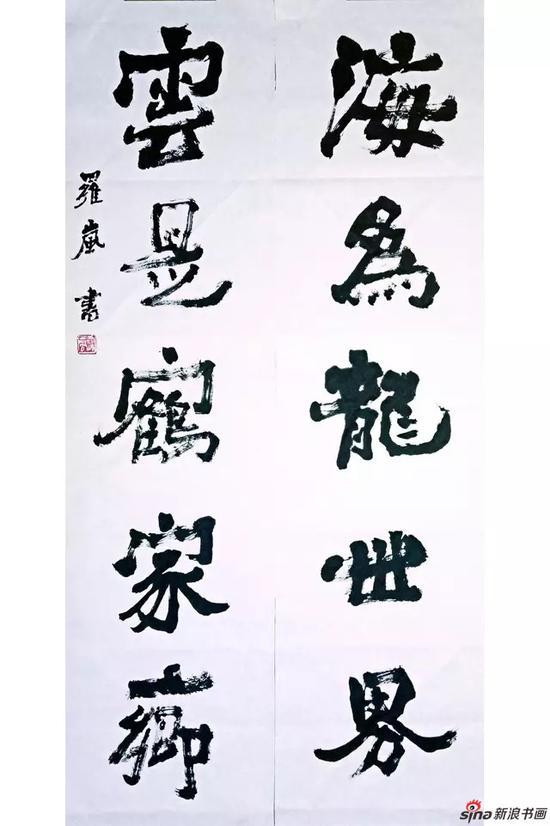 海為龍世界
雲是鶴家鄉
羅嵐書
sina新浪书画